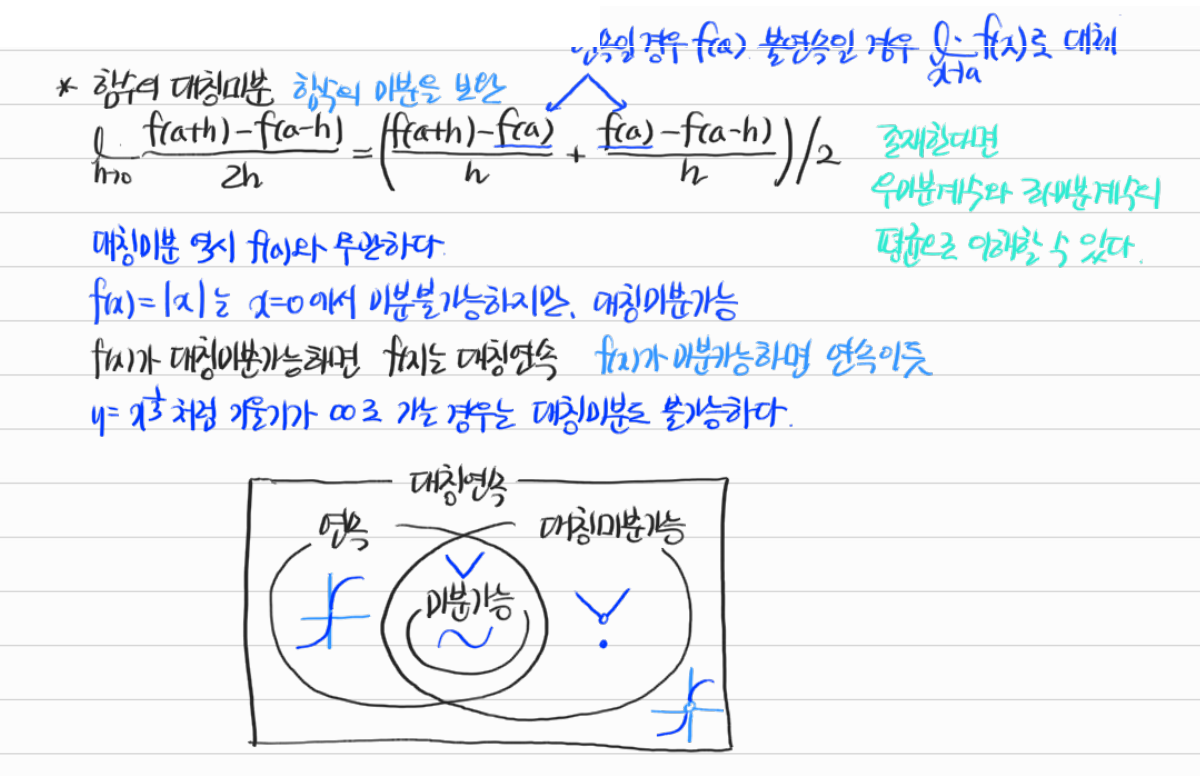 연속일 경우 f(a), 불연속일 경우 lim x→a f(x)로 대체
* 함수의 대칭미분 함수의 미분을 보완
lim h→0 f(a+h)-f(a-h) / 2h = ( f(a+h)-f(a) / h + f(a)-f(a-h) / h )/2
존재한다면
우미분계수와 좌미분계수의
평균으로 이해할 수 있다.
대칭미분 역시 f(a)와 무관하다.
f(x)=|x|는 x=0에서 미분불가능하지만, 대칭미분가능
f(x)가 대칭미분가능하면 f(x)는 대칭연속 f(x)가 미분가능하면 연속이듯
y=x^⅓처럼 기울기가 ∞로 가는 경우는 대칭미분도 불가능하다.
대칭연속
연속
대칭미분가능
미분가능